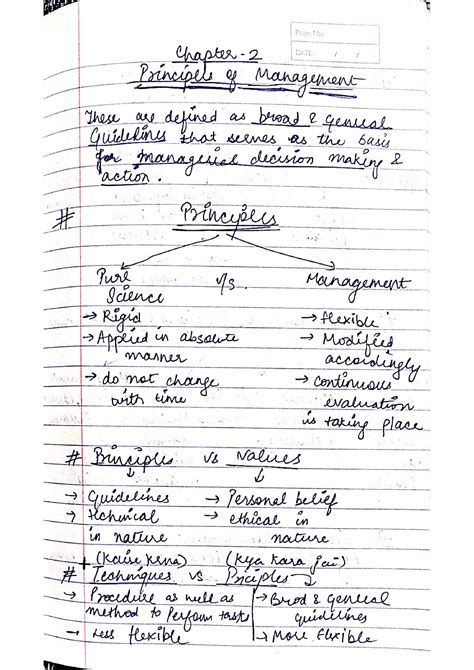 Page No.
DATE: / /
Chapter-2
Principles of Management
These are defined as broad & general
Guidelines that serves as the basis
for managerial decision making &
action.
# Principles
Pure Science v/s. Management
→ Rigid → flexible
→ Applied in absolute manner → Modified accordingly
→ do not change with time → continuous evaluation is taking place
# Principles vs Values
→ Guidelines → Personal belief
→ technical in nature → ethical in nature
(Kaise krna) (Kya kara jai)
# Techniques vs Priciples
→ Procedure as well as method to Perform tasks → Brod & general guidelines
→ Less flexible → More flexible